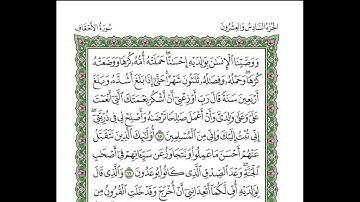 الجزء السادس والعشرون
سورة الأحقاف
ووصينا الإنسن بولديه إحسنا حملته أمه كرها ووضعته
كرها وحمله وفصله ثلثون شهرا حتى إذا بلغ أشده وبلغ
أربعين سنة قال رب أوزعني أن أشكر نعمتك التي أنعمت
علي وعلى ولدي وأن أعمل صلحا ترضىه وأصلح لي في ذريتي
إني تبت إليك وإني من المسلمين ١٥ أولئك الذين نتقبل
عنهم أحسن ما عملوا ونتجاوز عن سيئاتهم في أصحب
الجنة وعد الصدق الذي كانوا يوعدون ١٦ والذي قال
لولديه أف لكما أتعدانني أن أخرج وقد خلت القرون من